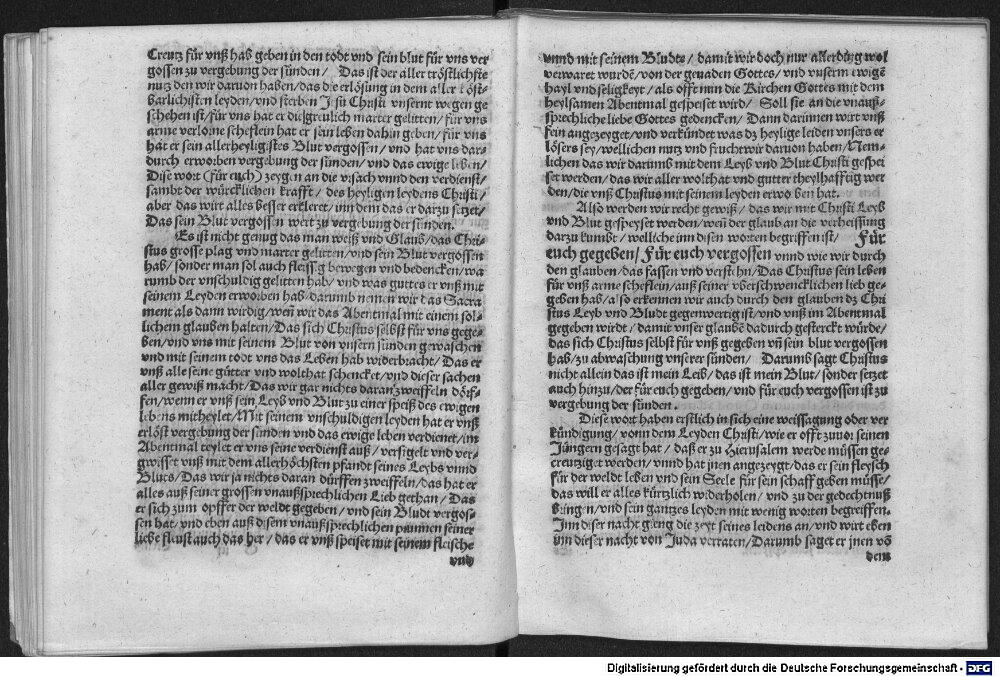 Creutz für vnß hab geben in den todt vnd sein blut für vns ver
gossen zu vergebung der sünden/ Das ist der aller tröstlichste
nutz den wir daruon haben/das die erlösung in dem aller köst-
barlichisten leyden/vnd sterben Jesu Christi vnsernt wegen ge
schehen ist/für vns hat er diß greulich marter gelitten/für vns
arme verlorne scheflein hat er sein leben dahin geben/für vns
hat er sein allerheyligistes Blut vergossen/ vnd hat vns dar-
durch erworben vergebung der sünden/vnd das ewige leben/
Dise wort (für euch) zeygen an die vrsach vnnd den verdienst/
sambt der würcklichen krafft/ des heyligen leydens Christi/
aber das wirt alles besser erkleret/inn dem das er darzu setzet/
Das sein Blut vergossen wert zu vergebung der sünden.
Es ist nicht genug das man weiß vnd Glaub/das Chri-
stus grosse plag vnd marter gelitten/vnd sein Blut vergossen
hab/sonder man sol auch fleissig bewegen vnd bedencken/wa
rumb der vnschuldig gelitten hab/ vnd was guttes er vnß mit
seinem Leyden erworben hab/darumb nemen wir das Sacra
ment als dann wirdig/weñ wir das Abentmal mit einem sol-
lichem glauben halten/Das sich Christus selbst für vns gege-
ben/vnd vns mit seinem Blut von vnsern sünden gewaschen
vnd mit seinem todt vns das Leben hab widerbracht/Das er
vnß alle seine gütter vnd wolthat schencket/vnd dieser sachen
aller gewiß macht/Das wir gar nichts daran zweiffeln dörf-
fen/wenn er vnß sein Leyb vnd Blut zu einer speiß des ewigen
lebens mitheylet/Mit seinem vnschuldigen leyden hat er vnß
erlöst vergebung der sünden vnd das ewige leben verdienet/im
Abentmal teylet er vns seine verdienst auß/ versigelt vnd ver-
gwisset vnß mit dem allerhöchsten pfandt seines Leybs vnnd
Bluts/Das wir ja nichts daran dürffen zweiffeln/das hat er
alles auß seiner grossen vnaußsprechlichen Lieb gethan/ Das
er sich zum opffer der weldt gegeben/vnd sein Bludt vergos-
sen hat/vnd eben auß disem vnaußsprechlichen prunnen seiner
liebe fleust auch das her/das er vnß speiset mit seinem fleische
vnd
vnnd mit seinem Bludte/ damit wir doch nur allerding wol
verwaret wurdẽ/von der genaden Gottes/vnd vnserm ewigẽ
hayl vnd seligkeyt/als offt nun die Kirchen Gottes mit dem
heylsamen Abentmal gespeiset wird/ Soll sie an die vnauß-
sprechliche liebe Gottes gedencken/ Dann darinnen wirt vnß
fein angezeyget/vnd verkündet was dz heylige leiden vnsers er
lösers sey/wellichen nutz vnd frucht wir daruon haben/Nem-
lichen das wir darumb mit dem Leyb vnd Blut Christi gespei
set werden/das wir aller wolthat vnd gutter theylhafftig wer
den/die vnß Christus mit seinem leyden erworben hat.
Also werden wir recht gewiß/ das wir mit Christi Leyb
vnd Blut gespeyset werden/weñ der glaub an die verheissung
darzu kumbt/wellliche inn disen worten begriffen ist/ Für
euch gegeben/ Für euch vergossen vnnd wie wir durch
den glauben/das fassen vnd verstehn/Das Christus sein leben
für vnß arme scheflein/auß seiner vberschwencklichen lieb ge-
geben hab/also erkennen wir auch durch den glauben dz Chri
stus Leyb vnd Bludt gegenwertig ist/vnd vnß im Abentmal
gegeben wirdt/damit vnser glaube dadurch gesterckt würde/
das sich Christus selbst für vnß gegeben vñ sein blut vergossen
hab/zu abwaschung vnserer sünden/ Darumb sagt Christus
nicht allein das ist mein Leib/das ist mein Blut/sonder setzet
auch hinzu/der für euch gegeben/vnd für euch vergossen ist zu
vergebung der sünden.
Diese wort haben erstlich in sich eine weissagung oder ver
kündigung/vonn dem Leyden Christi/wie er offt zuuor seinen
Jüngern gesagt hat/ daß er zu Hierusalem werde müssen ge-
creutziget werden/vnnd hat jnen angezeygt/das er sein fleysch
für der weldt leben vnd sein Seele für sein schaff geben müsse/
das will er alles kürtzlich widerholen/ vnd zu der gedechtnuß
bringen/vnd sein gantzes leyden mit wenig worten begreiffen.
Inn diser nacht gieng die zeyt seines leidens an/vnd wirt eben
inn dieser nacht von Juda verraten/Darumb saget er jnen võ
dem
Digitalisierung gefördert durch die Deutsche Forschungsgemeinschaft - DFG